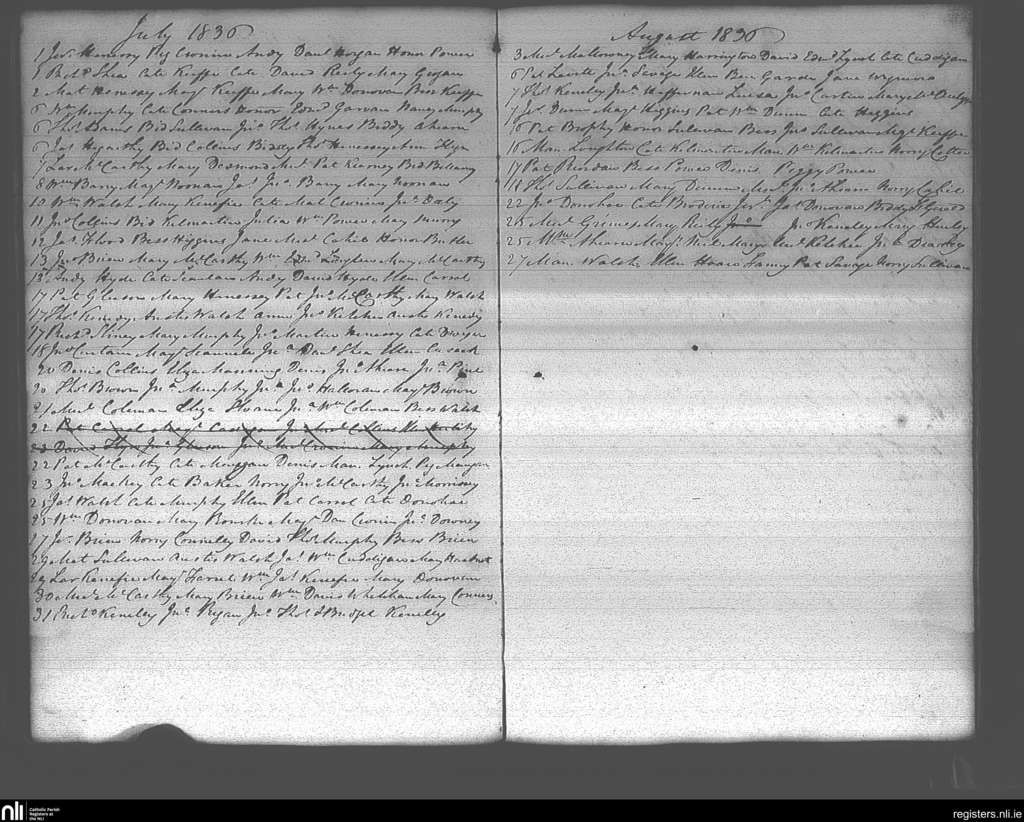 July 1836
1 Jas. Henessy Peg Cronin Andy Danl Horgan Honor Power
1 Bat. Shea Cate Keeffe Cate David Reily Mary Gegan
2 Mat Henesey Mary Keeffe Mary Wm Donovan Bess Keeffe
6 Wm Murphy Cate Connors Honor Edmd Garvan Nancy Murphy
6 Thos Davis Bid Sullivan Jno Thos Hynes Biddy Ahearn
6 Jas Hegarthy Bid Collins Biddy Thos Henessey Ann Flyn
7 Lar McCarthy Mary Desmond Mic. Pat Kearney Bid
8 Wm Barry Margt Noonan Jas Jno. Barry Mary Noonan
10 Wm Walsh Mary Kenefic Cate Mat Cronin Jno. Daly
11 Jno Collins Bid Kilmartin Julia Wm Power Mary
12 Jas. Flood Bess Higgins Jane Micl Cahil Honor Butler
13 Jno Brien Mary McCarthy Wm Edmd Mary McCarthy
13 Andy Hyde Cate Scanlan Andy David Hyde Ellen Carrol
17 Pat Gleason Mary Henessey Pat Jno McCarthy Mary Walsh
17 Thos Kenedy Austis Walsh Anne Jno Kelcher Austis Kenedy
17 Richd Sliney Mary Murphy Jno Martin Henessy Cate Dwyer
18 Jno Curtain Mary Scannell Danl Shea Ellen Cusack
20 Denis Collins Eliza Manning Denis Jno Ahearn Pine
20 Thos Brown Murphy Jno Halloran Mary Brown
21 Micl Coleman Eliza Ahearn Wm Coleman Bess Walsh
22 Pat Carrol Mary Collins
23 David Flyn Gleeson Cronin Mary Murphy
22 Pat McCarthy Cate Mangan Denis Mau. Lynch Peg Mangan
23 Jno Mackey Cate Baker Norry Jno McCarthy Morrissey
25 Jas Walsh Cate Murphy Ellen Pat Carrol Cate Donohue
25 Wm Donovan Mary Rourke Margt Dan Cronin Downey
27 Jer. Brien Norry Connelley David Thos Murphy Bess Brien
29 Mat Sullivan Austis Walsh Jas Wm Cudaigan Mary
29 Lar Kenefic Margt Farrel Wm Jas Kenefic Mary Donovan
30 Micl McCarthy Mary Brien Wm David Whelehan Mary Connors
31 Richd Keneley Regan Thos & Bridget Keneley
August 1836
3 Micl Mullowney Mary Harrington David Edmd Lynch Cate Cuddigan
6 Pat Lavell Savage Ellen Ben Garde Jane
7 Thos Keneley Heffernan Luisa Jno Curtin Mary
7 Jas Dunn Margt Higgins Pat Wm Dunn Cate Higgins
16 Pat Brophy Honor Sullivan Bess Jno Sullivan Mgt Keeffe
16 Mau. Loughlin Cate Kilmartin Mau. Wm Kilmartin Norry Cotter
17 Pat Riordan Bess Power Denis Peggy Power
18 Thos Sullivan Mary Dineen Jno Ahearn Norry Cahil
22 Jno Donohue Cate Broderic Jer. Jas Donovan Biddy Flood
25 Micl Grimes Mary Reily Jno Jno Keneley Mary Hurley
25 Wm Ahearn Margt Neil Mary Kelcher
27 Mau. Walsh Ellen Fanny Pat Savage Norry Sullivan
nli
Catholic Parish
Registers at
the NLI
registers.nli.ie